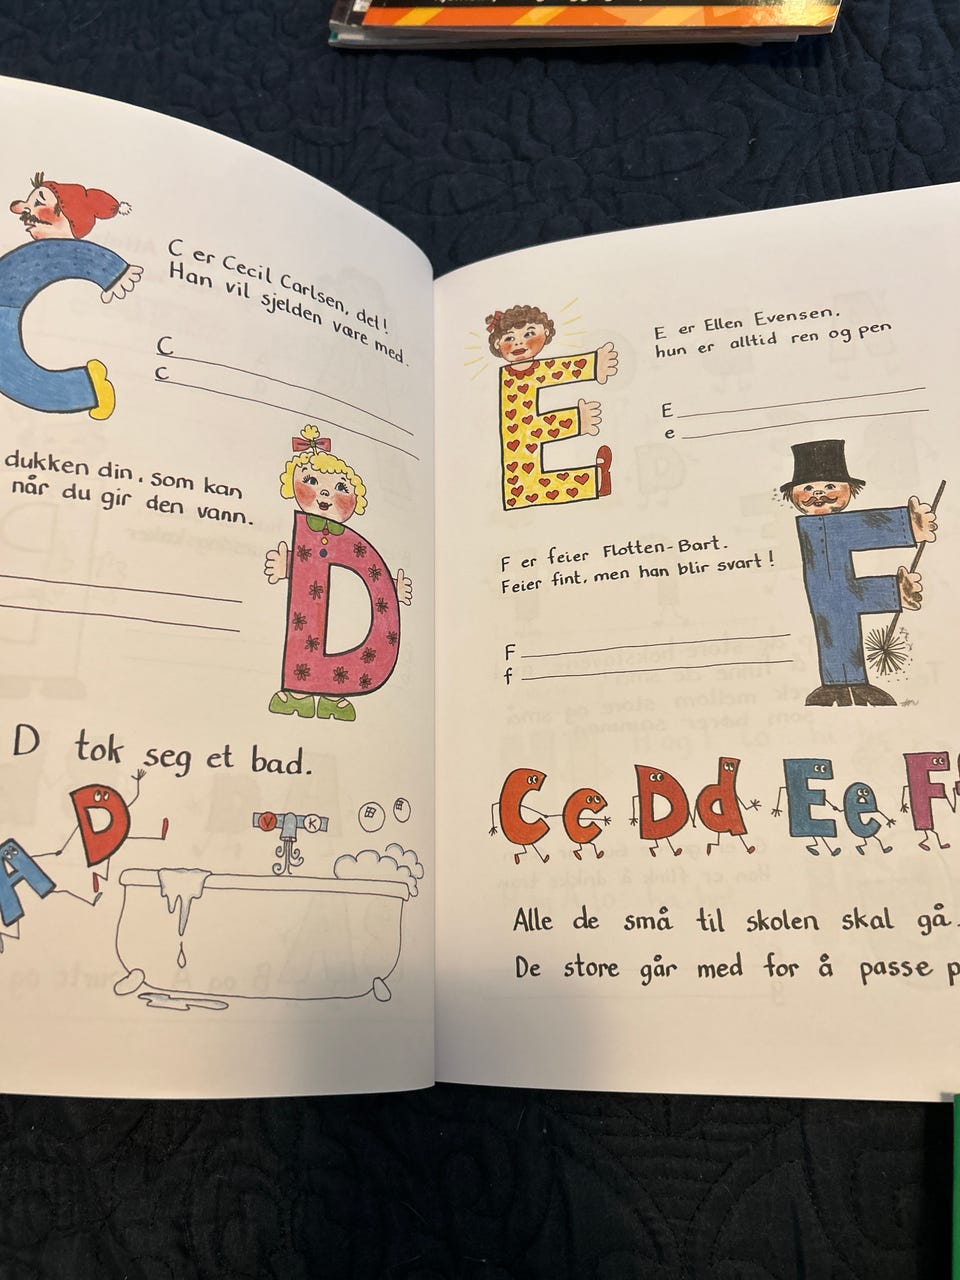 C er Cecil Carlsen, del!
Han vil sjelden være med.
C
c
dukken din, som kan
når du gir den vann.
D tok seg et bad.
D
A
V K
E er Ellen Evensen,
hun er alltid ren og pen
E
e
F er feier Flotten-Bart.
Feier fint, men han blir svart!
F
f
C c D d E e F
Alle de små til skolen skal gå.
De store går med for å passe p